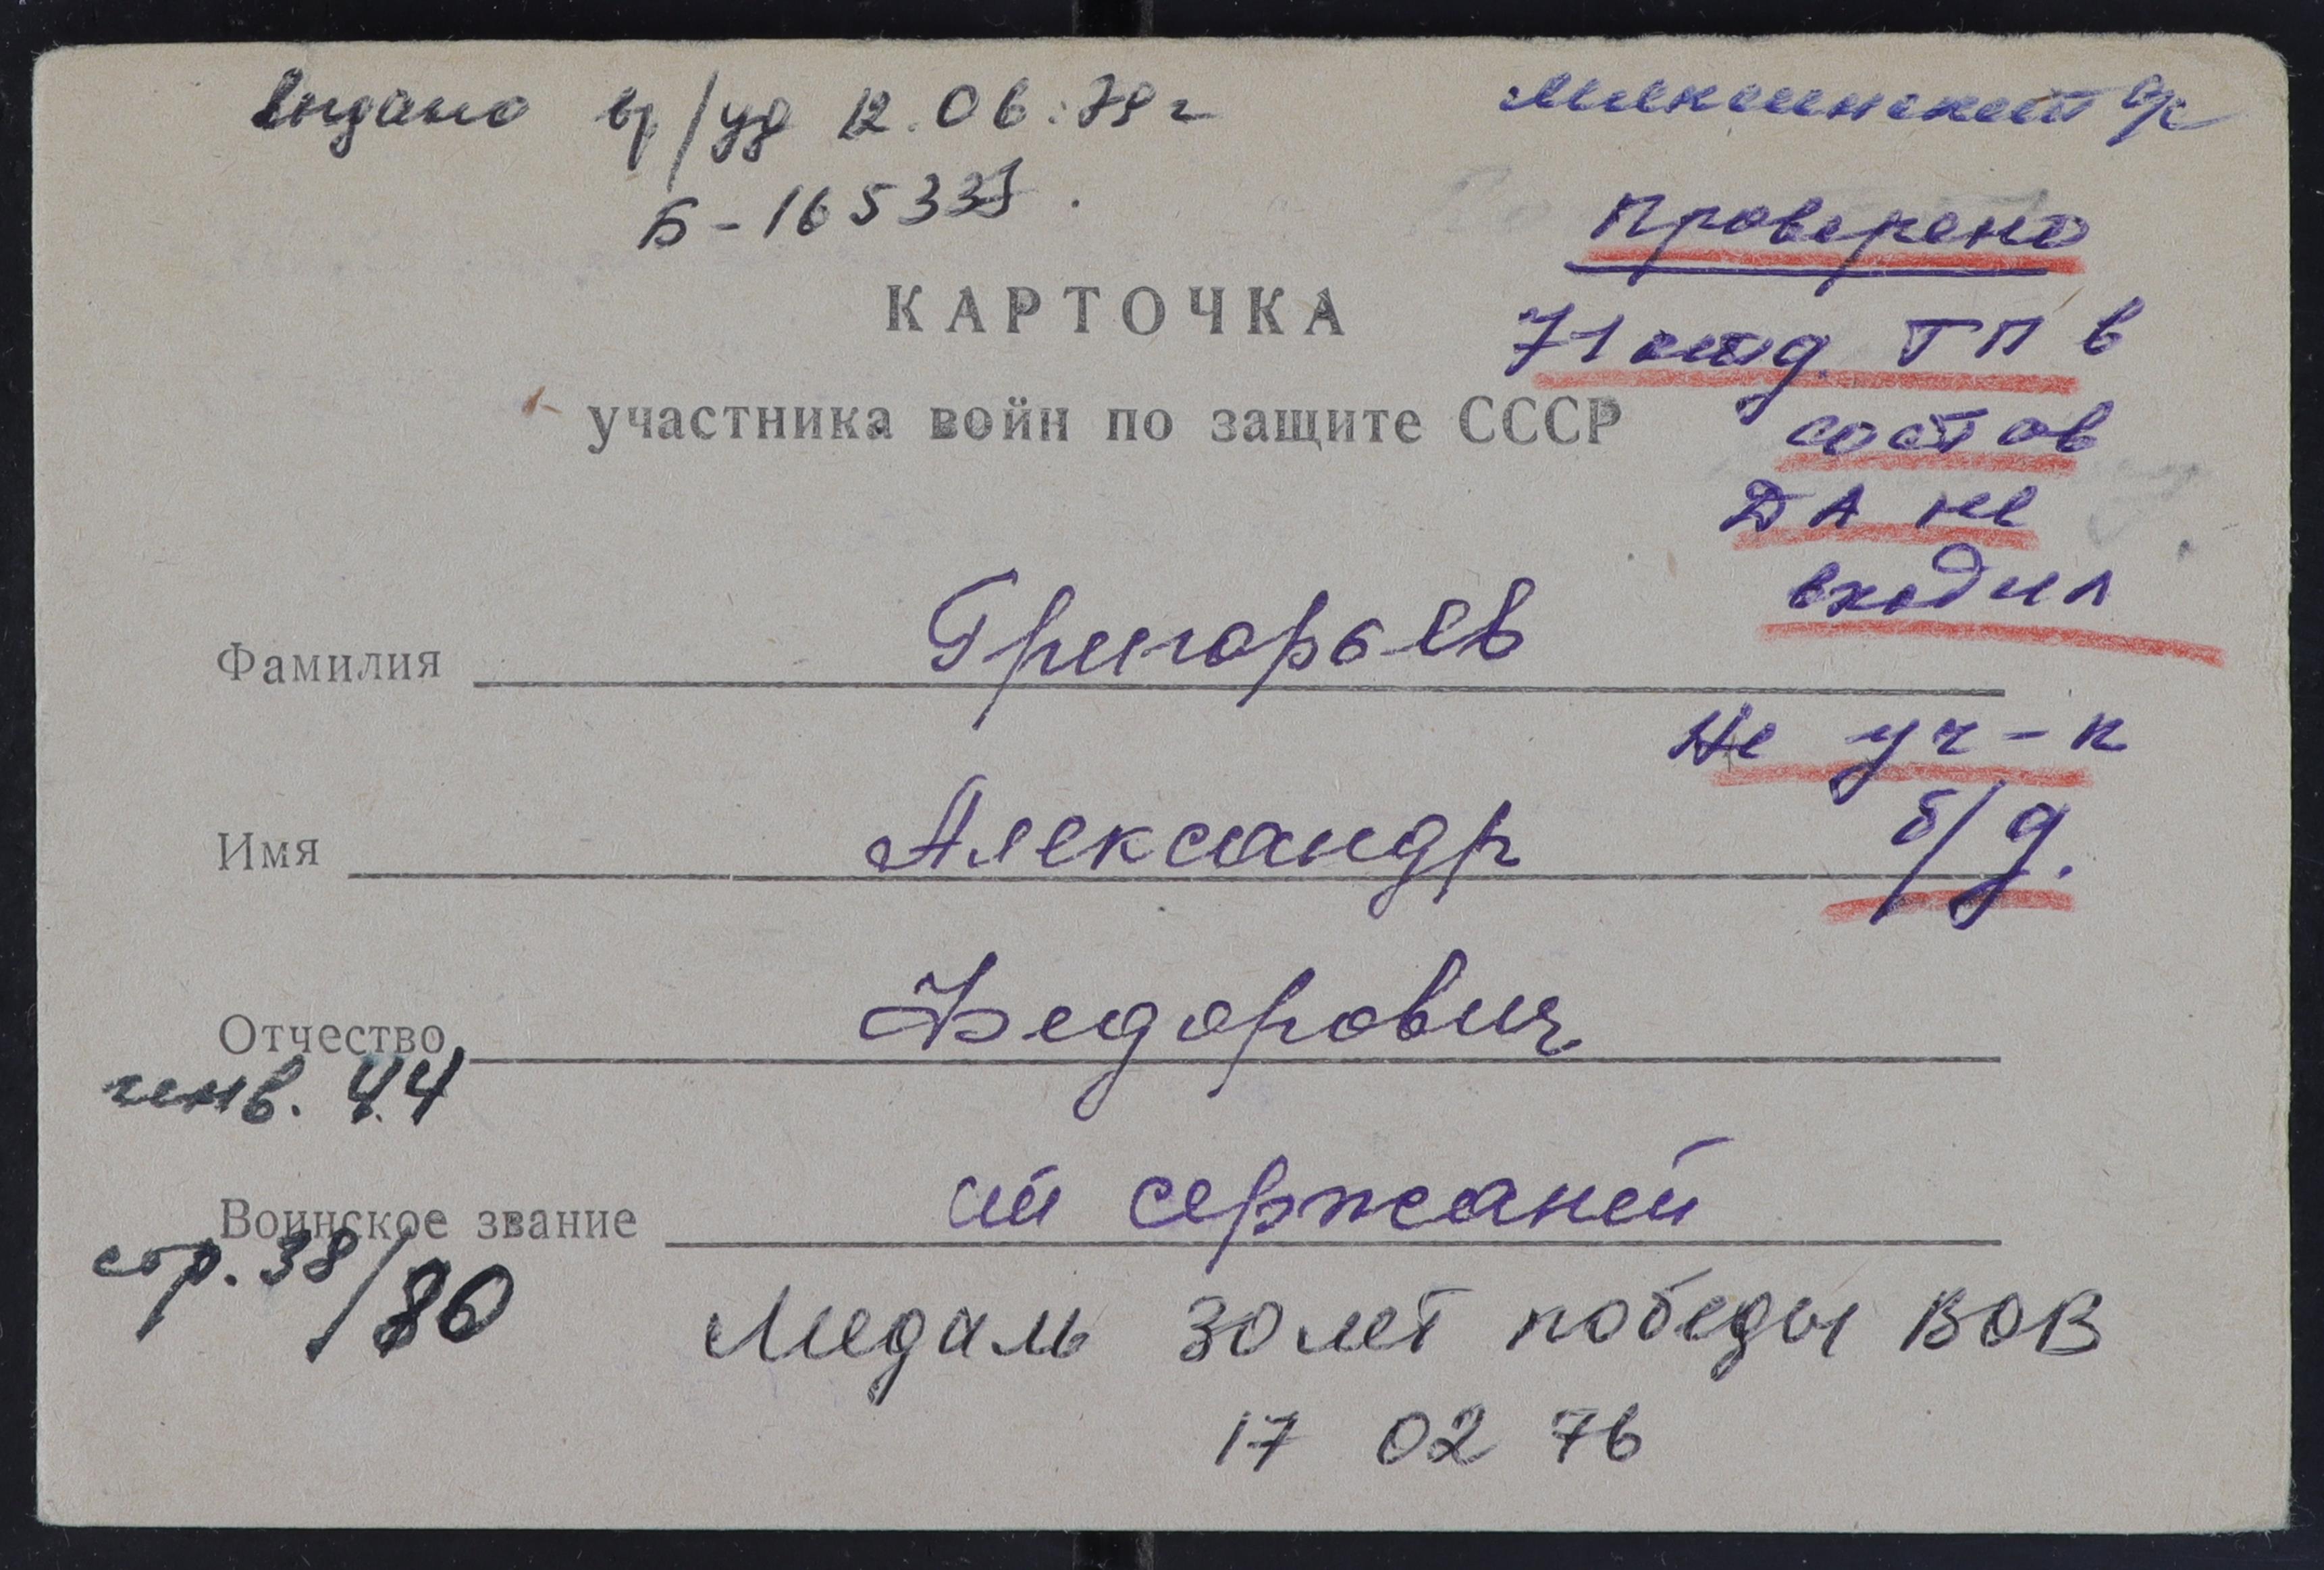 выдано вр/уд 12.06.79г
Б-165333
р/к
Проверено
КАРТОЧКА
71 отд. ТП в
участника войн по защите СССР
состав
ДА не
входил
Фамилия Григорьев
Не уч-к
Имя Александр
б/д.
Отчество Федорович
44
Воинское звание сержант
стр. 38/80
Медаль 30 лет победы ВОВ
17 02 76